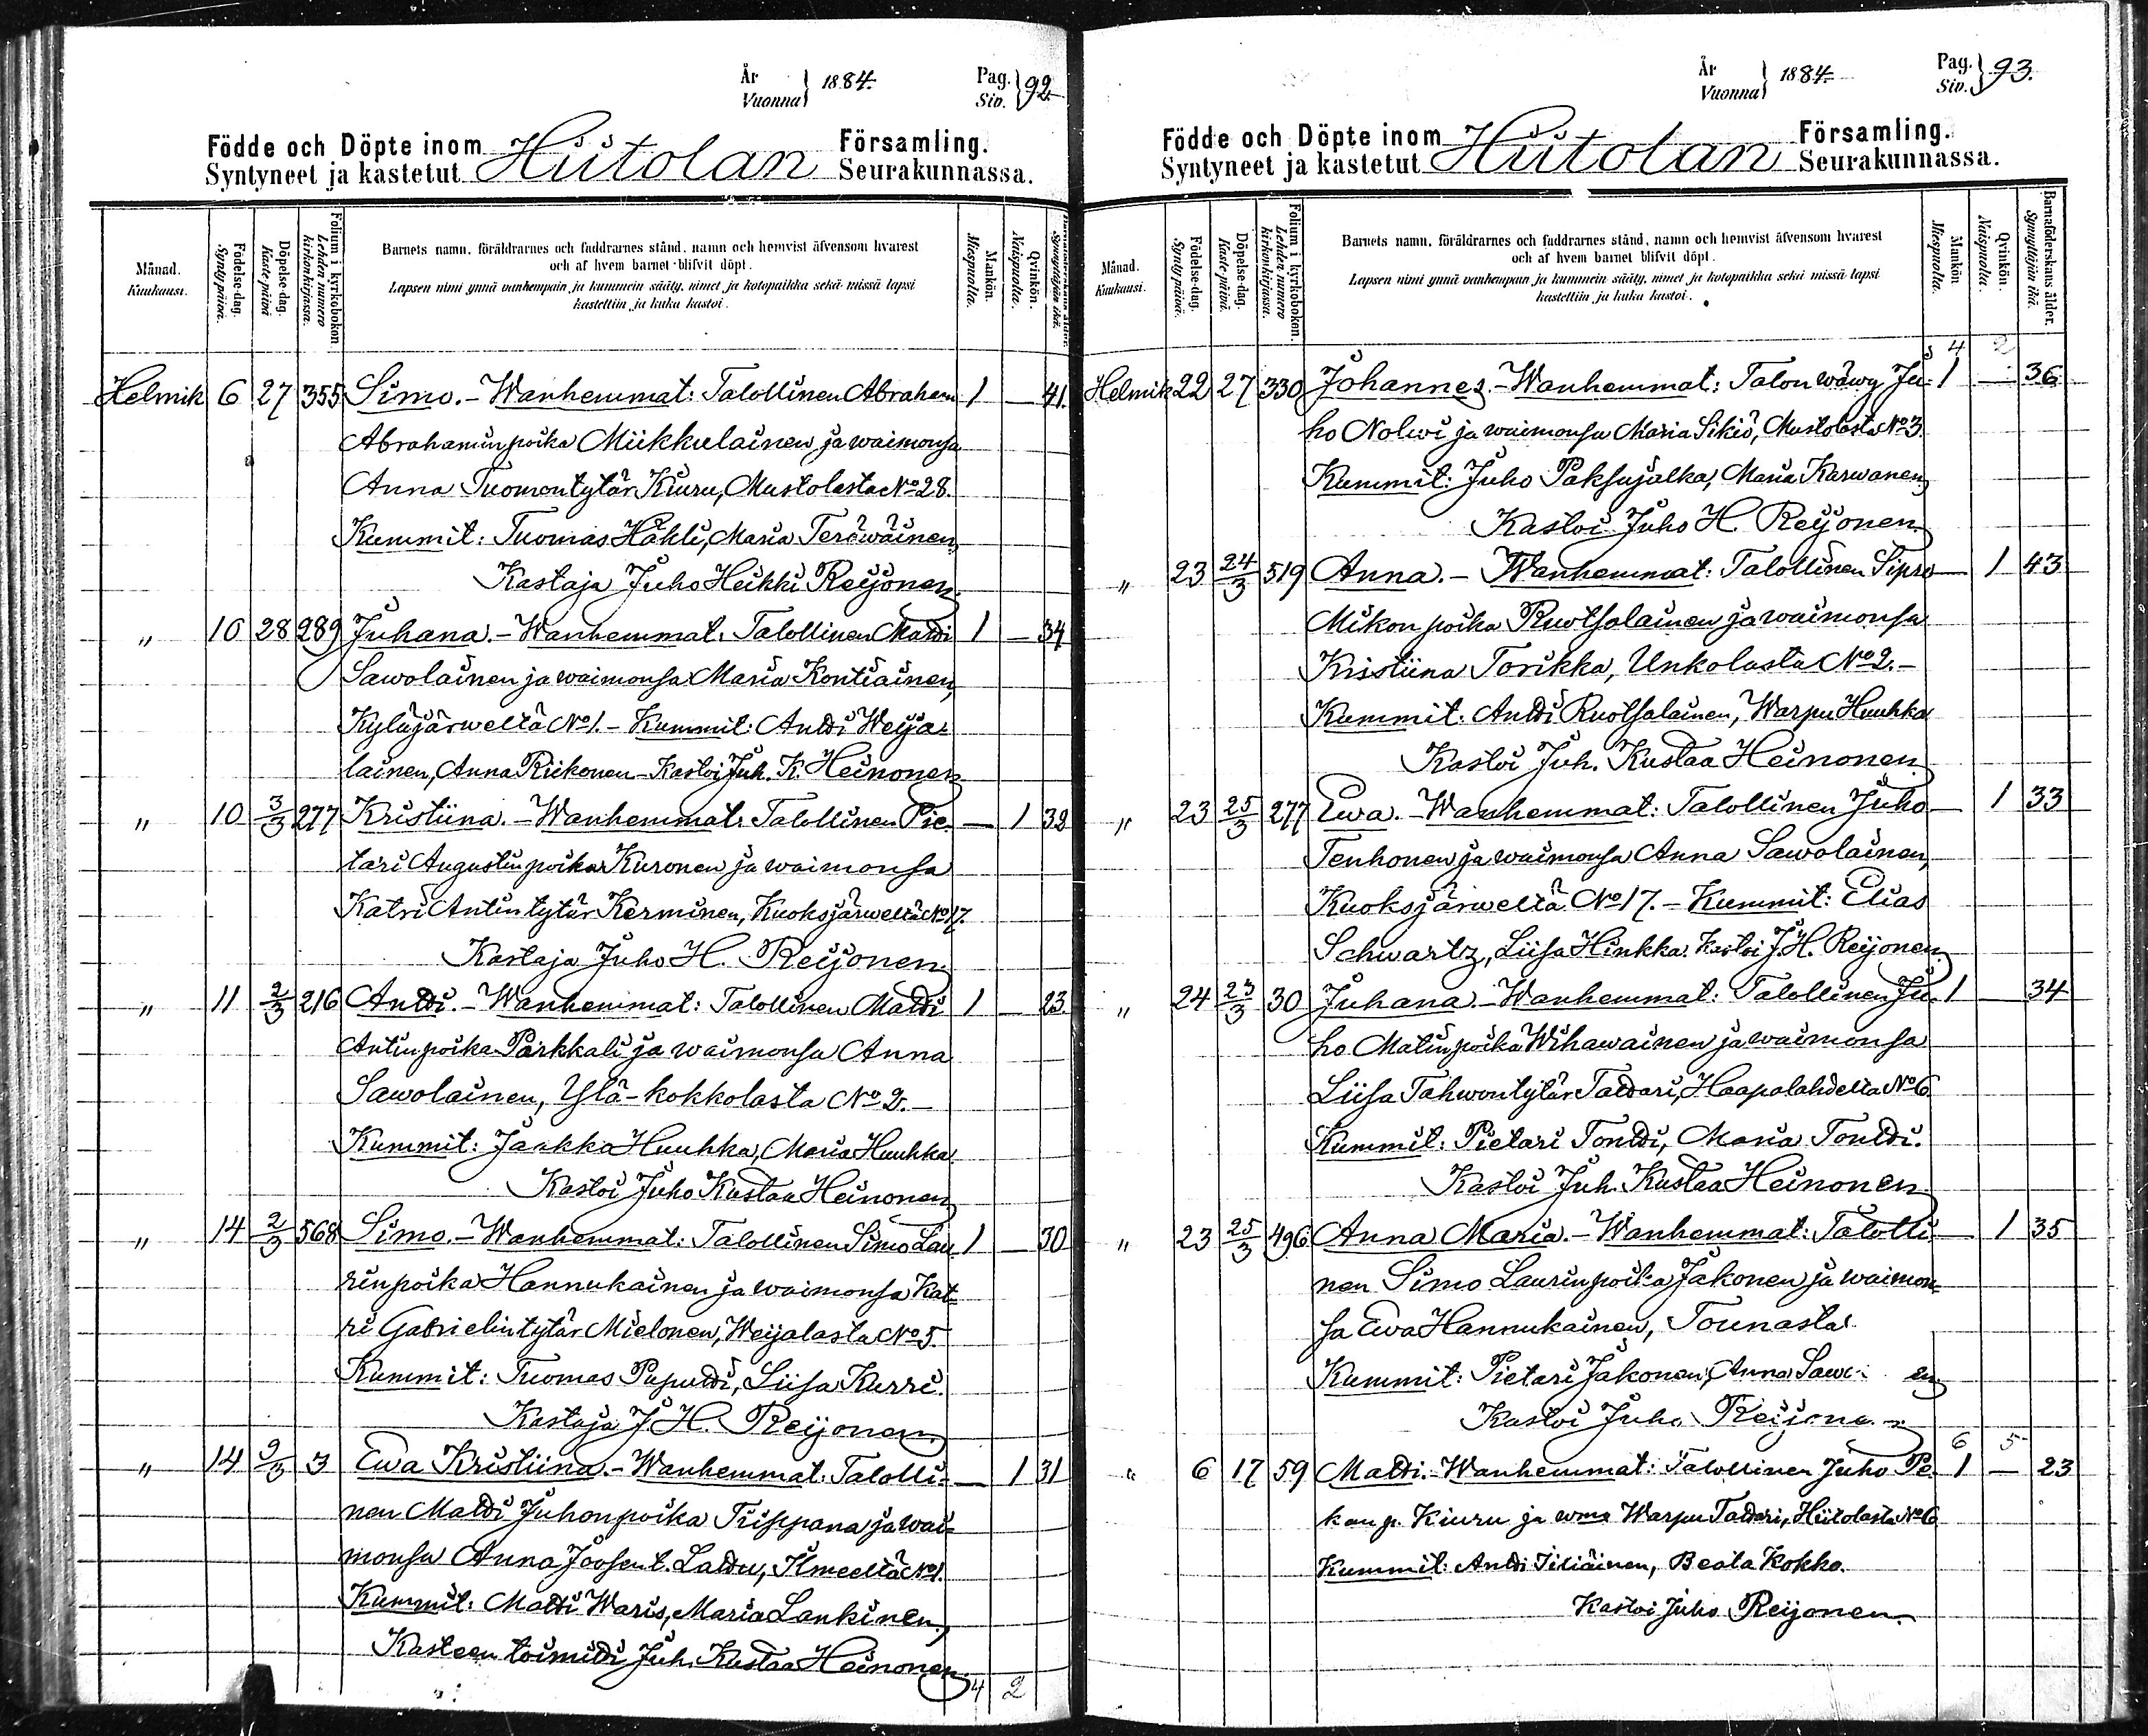 År
Vuonna 1884.
Pag.
Siv. 92.
Födde och Döpte inom Hiitolan Församling.
Syntyneet ja kastetut Seurakunnassa.
Månad.
Kuukausi.
Födelse-dag.
Syntypäivä.
Döpelse-dag.
Kaste-päivä
Folium i kyrkoboken.
Lehden numero
kirkonkirjassa.
Barnets namn, föräldrarnes och faddrarnes stånd, namn och hemvist äfvensom hvarest
och af hvem barnet blifvit döpt.
Lapsen nimi ynnä vanhempain ja kummein sääty, nimet ja kotopaikka sekä missä lapsi
kastettiin ja kuka kastoi.
Mankön.
Miespuolia.
Qvinkön.
Naispuolia.
Synnyttäjän ikä.
Helmik 6 27 355 Simo. - Wanhemmat: Talollinen Abraham 1 — 41.
Abrahaminpoika Miikkulainen ja waimonsa
Anna Tuomontytär Kiuru, Mustolasta No 28.
Kummit: Tuomas Hähli, Maria Teräwäinen,
Kastaja Juho Heikki Reijonen.
" 10 28 289 Juhana. - Wanhemmat: Talollinen Matti 1 — 34
Sawolainen ja waimonsa Maria Kontiainen,
Kyläjärweltä No 1. - Kummit: Antti Weija-
lainen, Anna Riikonen - Kastoi Juh. K. Heinonen
" 10 3/3 277 Kristiina. - Wanhemmat: Talollinen Pie- — 1 32
tari Augustinpoika Kuronen ja waimonsa
Katri Antintytär Kerminen, Kuoksjärweltä No 17.
Kastaja Juho H. Reijonen.
" 11 2/3 216 Antti. - Wanhemmat: Talollinen Matti 1 — 23.
Antinpoika Parkkali ja waimonsa Anna
Sawolainen, Ylä-kokkolasta No 2. -
Kummit: Jaakko Huuhka, Maria Huuhka.
Kastoi Juho Kustaa Heinonen
" 14 2/3 568 Simo. - Wanhemmat: Talollinen Simo Lau 1 — 30
rinpoika Hannukainen ja waimonsa Kat-
ri Gabrielintytär Mielonen, Weijalasta No 5.
Kummit: Tuomas Puputti, Liisa Kurri.
Kastaja J H. Reijonen.
" 14 9/3 3 Ewa Kristiina. - Wanhemmat: Talolli- — 1 31
nen Matti Juhonpoika Trippana ja wai-
monsa Anna Joosent. Lattu, Ilmeeltä No 1.
Kummit: Matti Waris, Maria Lankinen,
Kasteen toimitti Juh. Kustaa Heinonen.
4 2
År
Vuonna 1884.
Pag.
Siv. 93.
Födde och Döpte inom Hiitolan Församling.
Syntyneet ja kastetut Seurakunnassa.
Månad.
Kuukausi.
Födelse-dag.
Syntypäivä.
Döpelse-dag.
Kaste-päivä.
Folium i kyrkoboken.
Lehden numero
kirkonkirjassa.
Barnets namn, föräldrarnes och faddrarnes stånd, namn och hemvist äfvensom hvarest
och af hvem barnet blifvit döpt.
Lapsen nimi ynnä vanhempain ja kummein sääty, nimet ja kotopaikka sekä missä lapsi
kastettiin ja kuka kastoi.
Mankön
Miespuolia.
Qvinkön.
Naispuolia.
Barnaföderskans ålder.
Synnyttäjän ikä.
4 2
Helmik 22 27 330 Johannes. - Wanhemmat: Talon wäwy Ju- 1 — 36
ho Nolwi ja waimonsa Maria Sikiö, Mustolasta No 3.
Kummit: Juho Paksujalka, Maria Karwanen,
Kastoi Juho H. Reijonen.
" 23 24/3 519 Anna. - Wanhemmat: Talollinen Sipro — 1 43
Mikonpoika Ruotsalainen ja waimonsa
Kristiina Torikka, Unkolasta No 2. -
Kummit: Antti Ruotsalainen, Warpu Huuhka
Kastoi Juh. Kustaa Heinonen.
" 23 25/3 277 Ewa. - Wanhemmat: Talollinen Juho — 1 33
Tenhonen ja waimonsa Anna Sawolainen,
Kuoksjärweltä No 17. - Kummit: Elias
Schwartz, Liisa Hinkka. Kastoi J.H. Reijonen.
" 24 23/3 30 Juhana. - Wanhemmat: Talollinen Ju- 1 — 34
ho Matinpoika Wihawainen ja waimonsa
Liisa Tahwontytär Tattari, Haapalahdelta No 6
Kummit: Pietari Tontti, Maria Tontti.
Kastoi Juh. Kustaa Heinonen.
" 23 25/3 496 Anna Maria. - Wanhemmat: Talolli- — 1 35
nen Simo Laurinpoika Jakonen ja waimon-
sa Ewa Hannukainen, Tounasta.
Kummit: Pietari Jakonen, Anna
Kastoi Juho Reijonen
6 5
" 6 17 59 Matti. - Wanhemmat: Talollinen Juho Pe- 1 — 23
kan p. Kiuru ja wma Warpu Tattari, Hiitolasta No 6
Kummit: Antti Iiliäinen, Beata Kokko.
Kastoi Juho Reijonen.